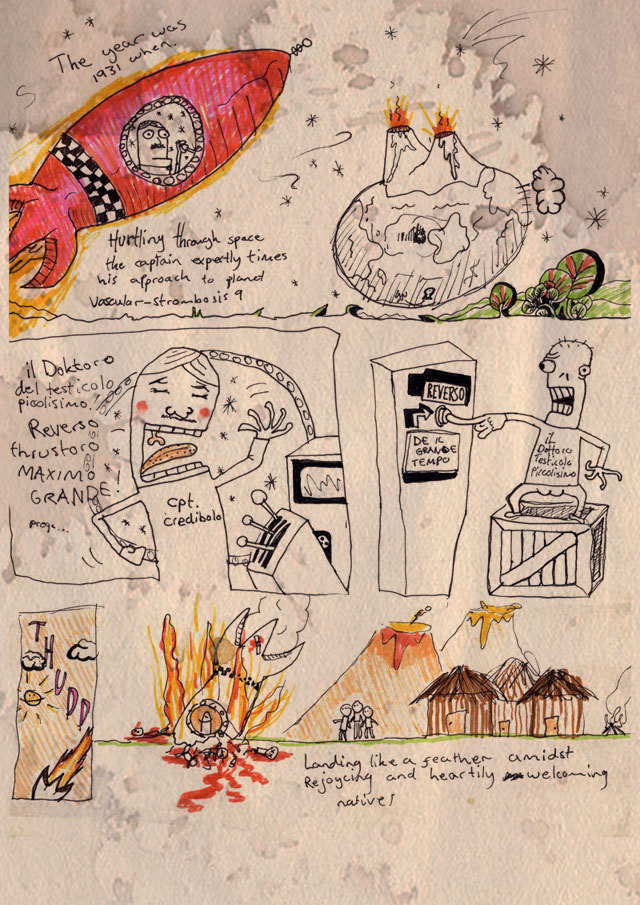 The year was
1931 when.
Hurtling through space
the captain expertly times
his approach to planet
Vascular-strombosis 9
il Doktoro
del testicolo
picolisimo!
Reverso
thrustoro
MAXIMO
GRANDE!
prego...
Cpt.
Credibolo
REVERSO
DE IL
GRANDE
TEMPO
IL
Dottoro
Testicolo
Picolisimo
THUDD
Landing like a feather amidst
Rejoycing and heartily welcoming
natives